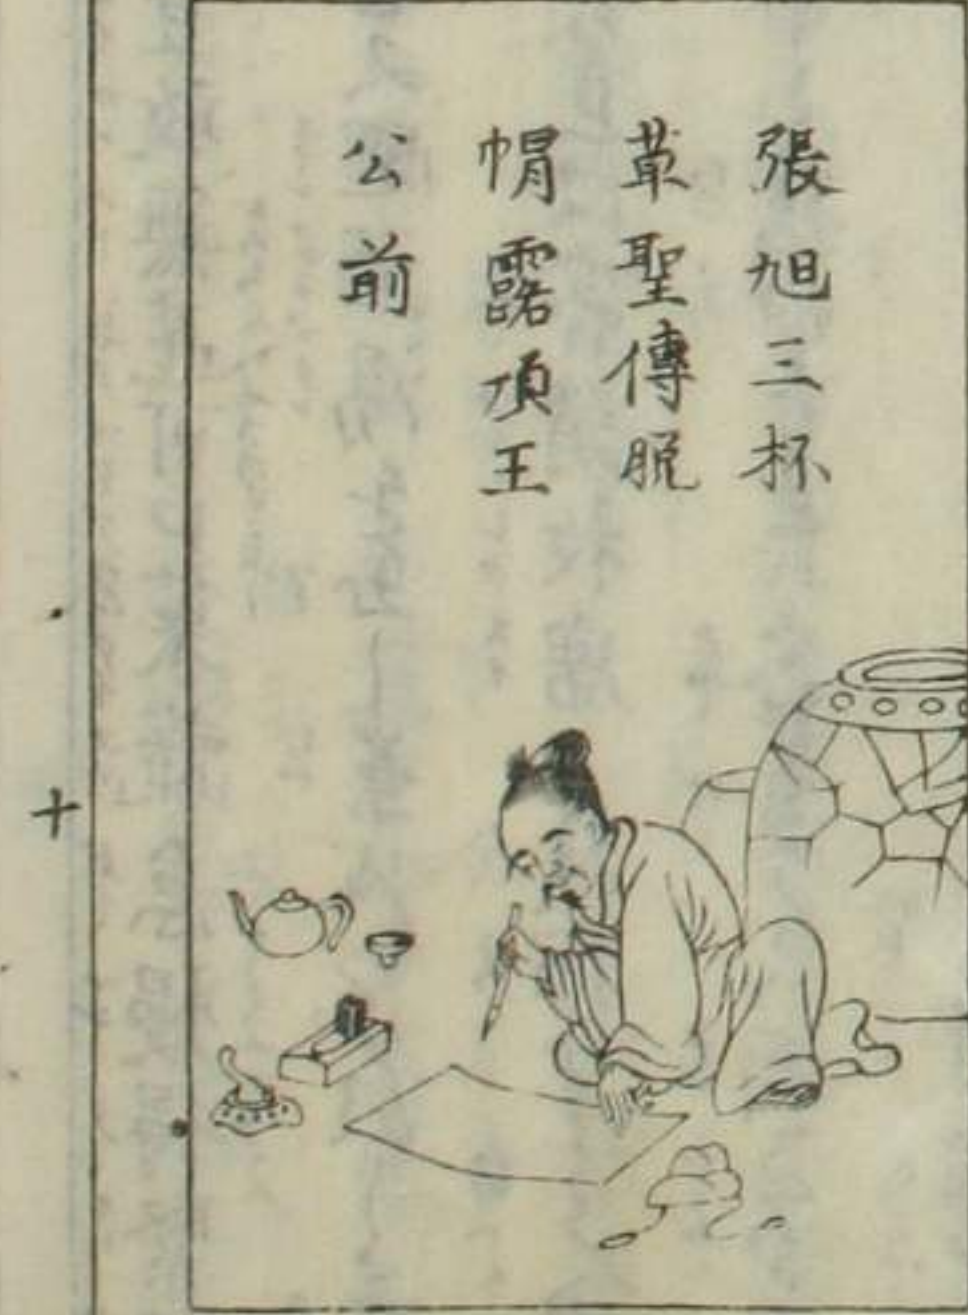 張旭三杯
草聖傳脫
帽露頂王
公前
十